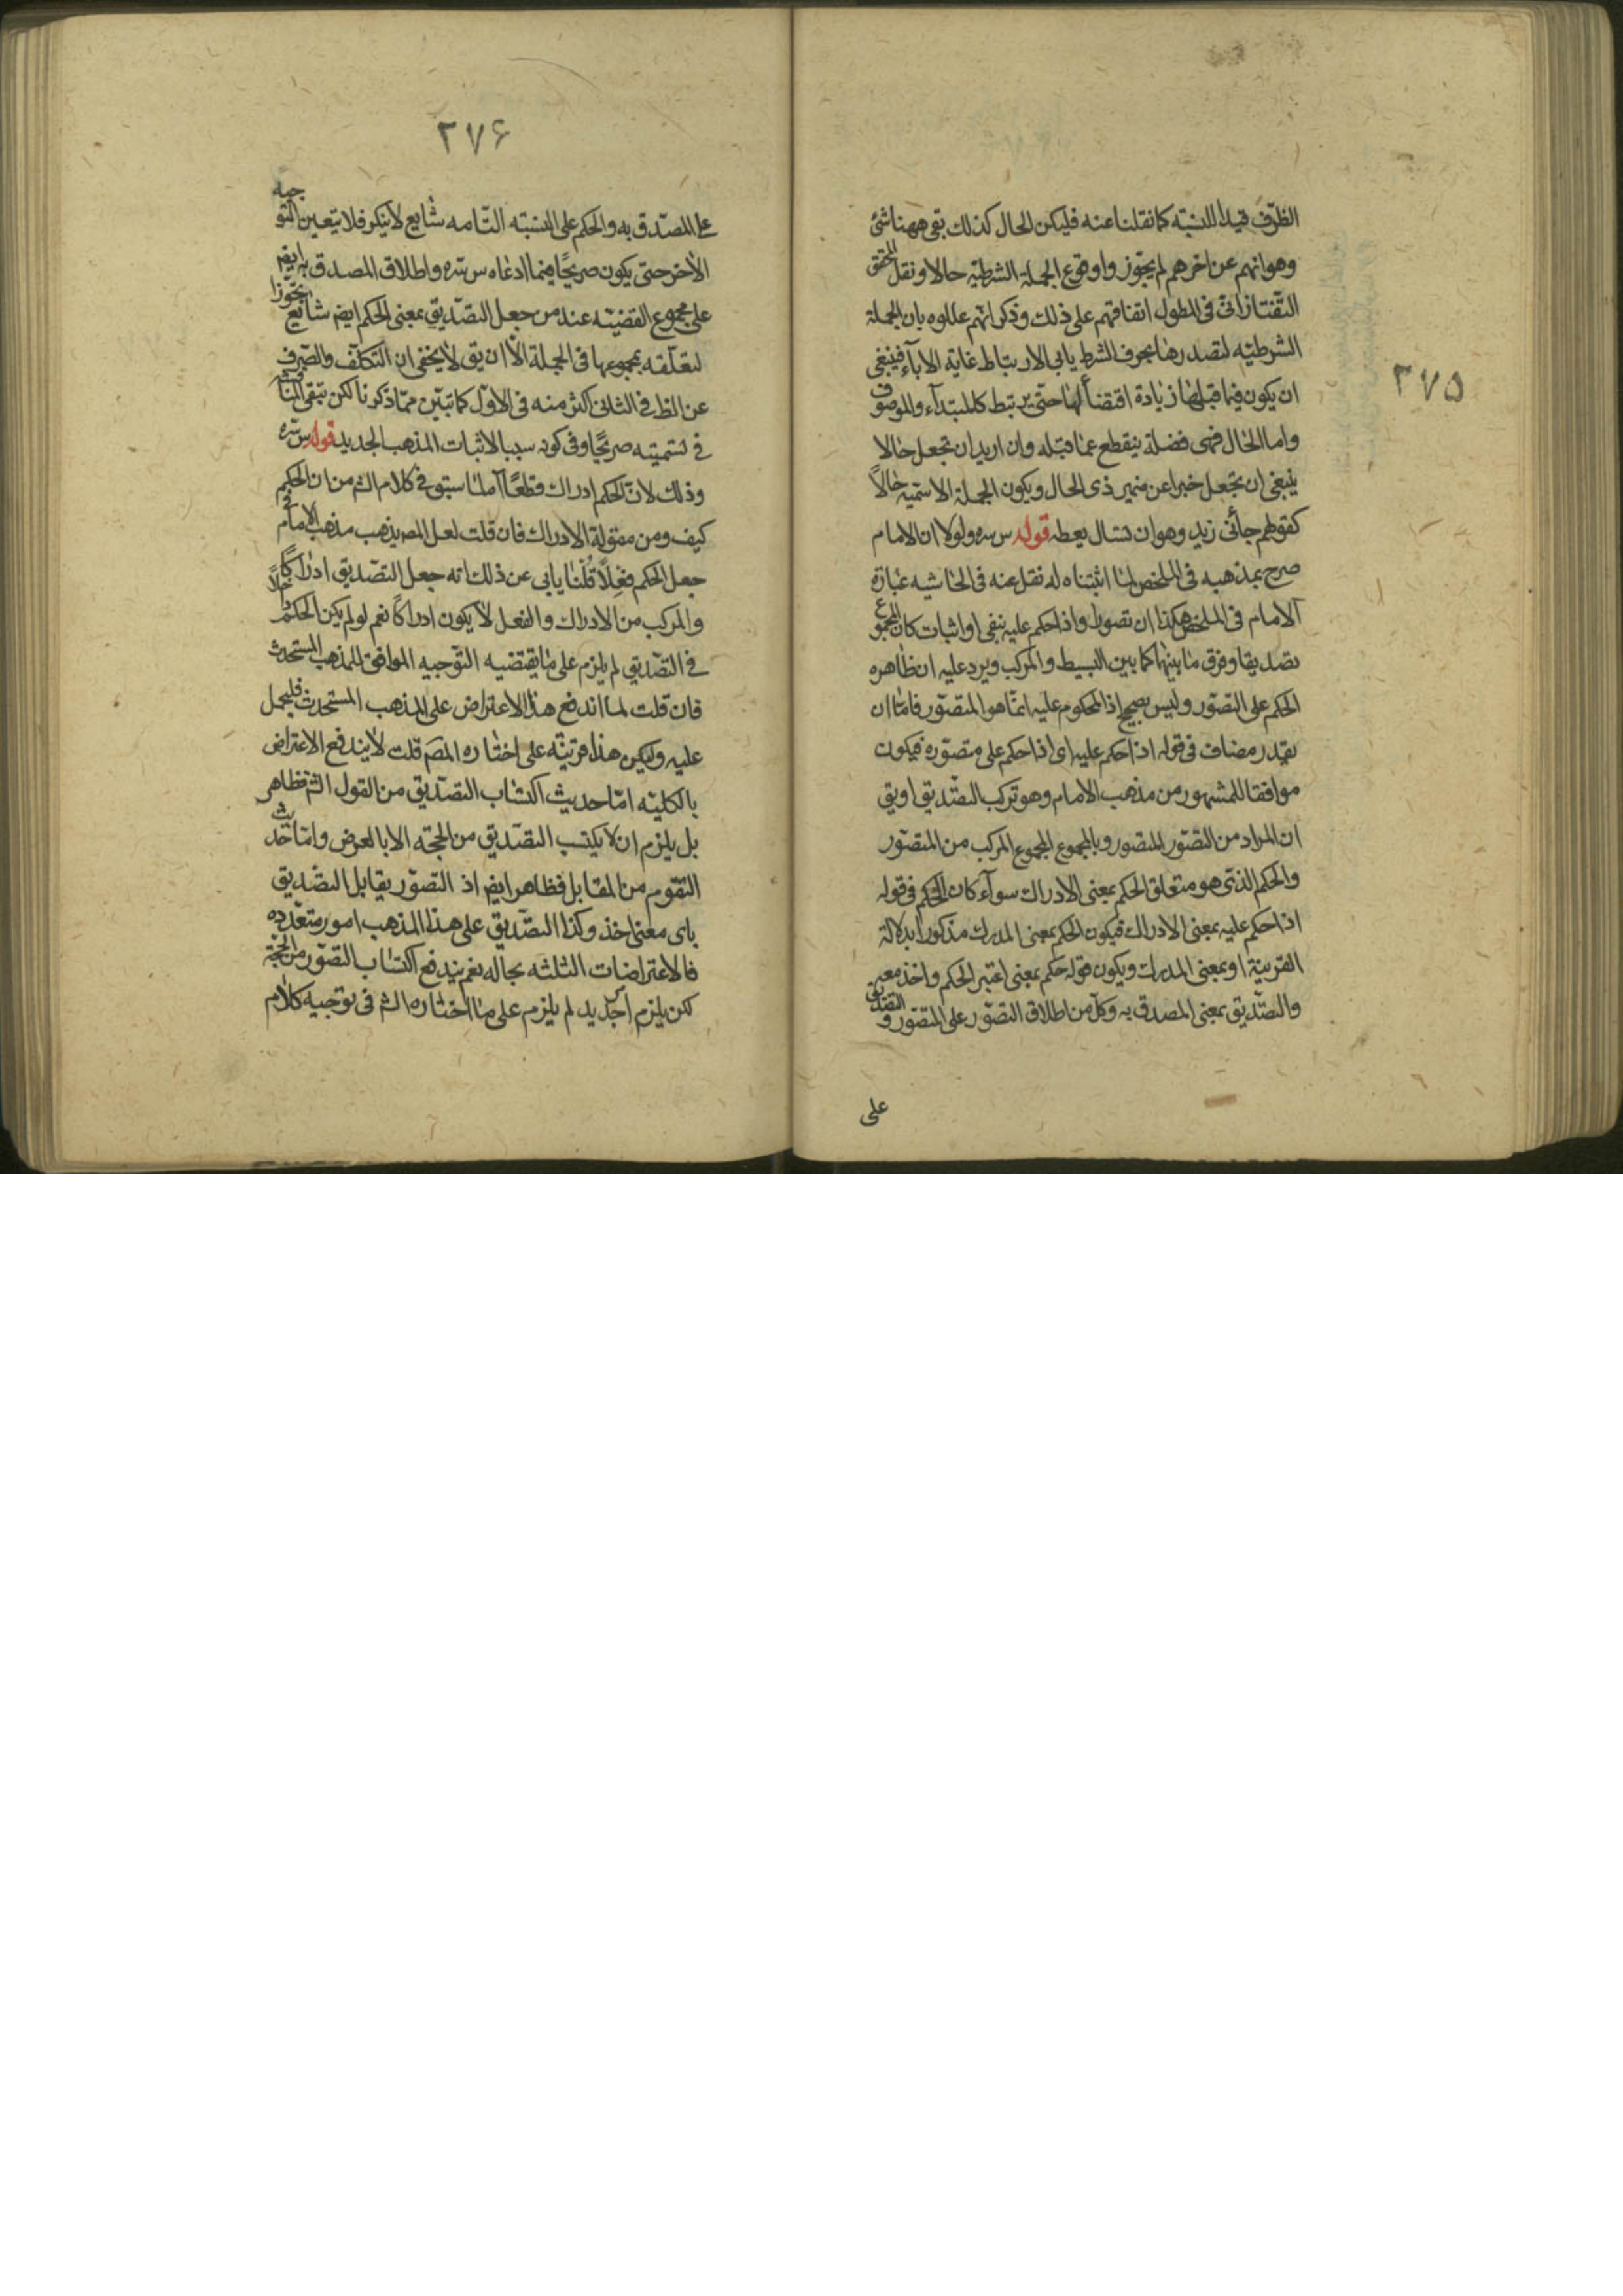 ۲۷۵
الظرف قيدا للنسبة كما نقلنا عنه فليكن الحال كذلك بقى ههنا شئ
وهو انهم عن اخرهم لم يجوّزوا وقوع الجملة الشرطيّه حالا ونقل المحقق
التّفتازانىّ فى المطول اتفاقهم على ذلك وذكر انّهم عللوه بان الجملة
الشرطيّه لتصدرها بحرف الشرط يابى الارتباط غاية الاباء فينبغى
ان يكون فيما قبلها زيادة اقتضاء لها حتّى يرتبط كالمبتداء والموصوف
واما الحال فهى فضلة ينقطع عما قبله وان اريد ان تجعل حالا
ينبغى ان تجعل خبرا عن ضمير ذى الحال ويكون الجملة الاسميّه حالاً
كقولهم جائنى زيد وهو ان تسال يعطه قوله س سره ولولا ان الامام
صرح بمذهبه فى الملخص لما اثبتناه له نقل عنه فى الحاشيه عبارة
الامام فى الملخص هكذا ان تصورا واذا حكم عليه بنفى او اثبات كان المجموع
تصديقا وفرق ما بينهما كما بين البسيط والمركب ويرد عليه ان ظاهره
الحكم على التصوّر وليس بصحيح اذ المحكوم عليه انمّا هو المتصوّر فامّا ان
يقدر مضاف فى قوله اذا حكم عليه اى اذا حكم على متصوّره فيكون
موافقا للمشهور من مذهب الامام وهو تركب التصّديق او يق
ان المراد من التصوّر المتصور وبالمجموع المجموع المركب من المتصوّر
والحكم الذى هو متعلق الحكم بمعنى الادراك سوآء كان الحكم فى قوله
اذا حكم عليه بمعنى الادراك فيكون الحكم بمعنى المدرك مذكورا بدلالة
القرينة او بمعنى المدرك ويكون قوله حكم بمعنى اعتبر الحكم واخذ معه
والتصّديق بمعنى المصدق به وكلّ من اطلاق التصوّر على المتصّور و التصديق
على
۲۷۶
على المصّدق به والحكم على النسبته التّامه شايع لا ينكر فلا يتعين التوجيه
الأخر حتى يكون صريحًا فيما ادعاه س سره واطلاق المصدق به ايضا
على مجموع القضيّه عند من جعل التصّديق بمعنى الحكم ايضا شائع تجوّزا
لتعلّقه بمجموعها فى الجملة الّا ان يق لا يخفى ان التكلّف والصّرف
عن الظ فى الثانى اكثر منه فى الاول كما تبيّن ممّا ذكرنا لكن تبقى المناقشه
فى تسميته صريحًا وفى كونه سببا لاثبات المذهب الجديد قوله س سره
وذلك لانّ الحكم ادراك قطعًا آه لما سبق فى كلام الشم من ان الحكم
كيف ومن مقولة الادراك فان قلت لعل المصم يذهب مذهب الامام فى
جعل الحكم فعلاً قلنا يابى عن ذلك انه جعل التصّديق ادراكًا
والمركب من الادراك والفعل لا يكون ادراكًا نعم لو لم يكن الحكم داخلاً
فى التصّديق لم يلزم على ما يقتضيه التوّجيه الموافق للمذهب المستحدث
فان قلت لما اندفع هذا الاعتراض على المذهب المستحدث فليحمل
عليه وليكن هذا قرينة على اختاره المصم قلت لا يندفع الاعتراض
بالكليّه امّا حديث اكتساب التصّديق من القول الشم فظاهر
بل يلزم ان لا يكتسب التصّديق من الحجّه الا بالعرض وامّا حديث
التقوم من المقابل فظاهر ايضا اذ التصوّر يقابل التصّديق
باى معنى اخذ وكذا التصّديق على هذا المذهب امور متعدّده
فالاعتراضات الثلثه بحاله نعم يندفع اكتساب التصوّر من الحجّة
لكن يلزم اخر بديد لم يلزم على ما اختاره الشم فى توجيه كلام